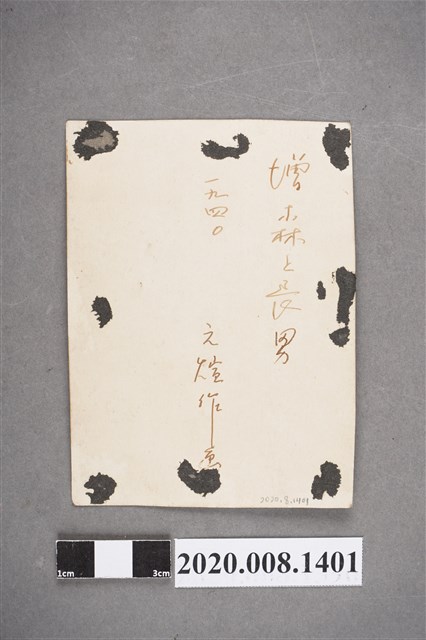 增森と長男
一九四〇
元煊作
2020.8.1401
1cm
3cm
2020.008.1401